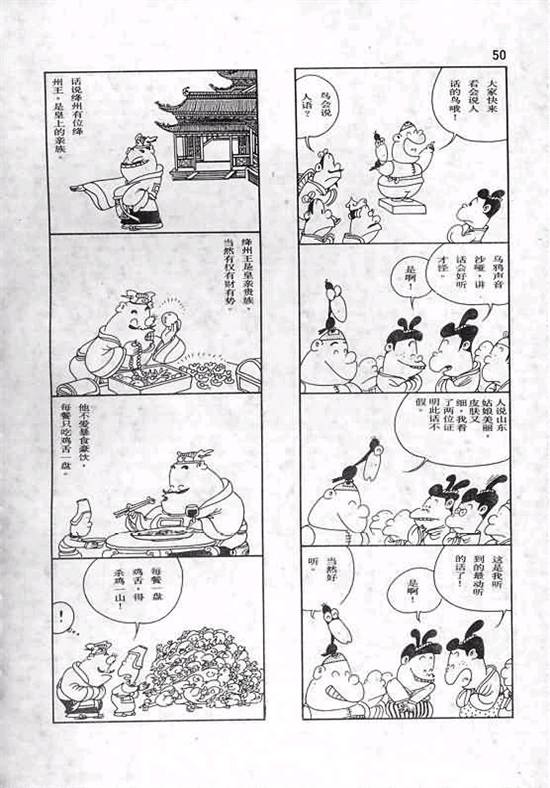 50
大家快来
看会说人
话的鸟哦！
鸟会说
人语？
乌鸦声音
沙哑，讲
话会好听
才怪。
是啊！
人说山东
姑娘美丽，
皮肤又
细，我看
了两位证
明此话不
假。
这是我听
到的最动听
的话了！
是啊！
当然好
听。
话说绛州有位绛
州王，是皇上的亲族。
绛州王是皇亲贵族，
当然有权有财有势。
他不爱暴食豪饮，
每餐只吃鸡舌一盘。
每餐一盘
鸡舌，得
杀鸡一山！
！